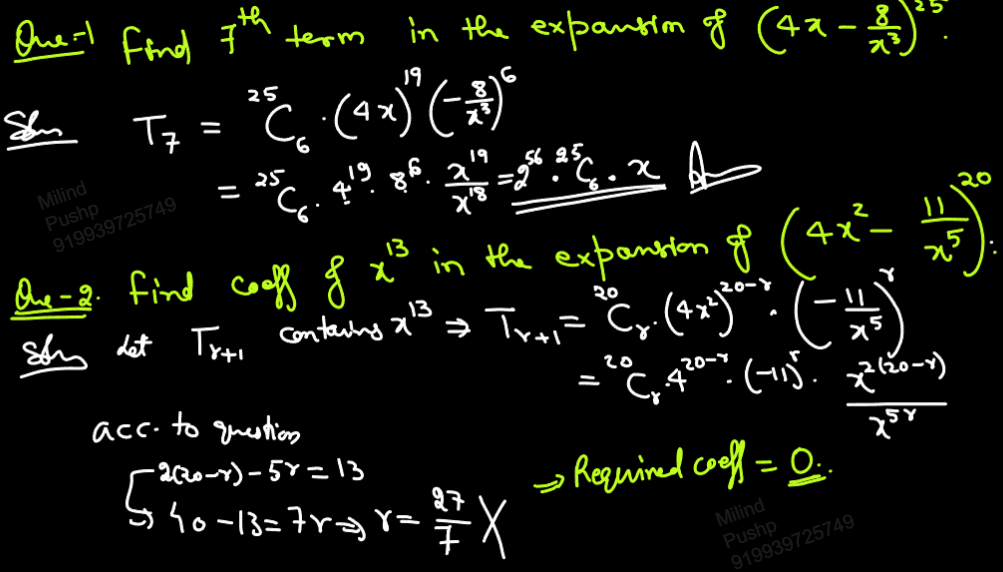 Que-1 Find 7th term in the expansion of (4x - 8/x³)²⁵.
Soln T₇ = ²⁵C₆ · (4x)¹⁹ (-8/x³)⁶
= ²⁵C₆ · 4¹⁹ · 8⁶ · x¹⁹/x¹⁸ = 2⁵⁶ · ²⁵C₆ · x Ans
Milind
Pushp
919939725749
Que-2. Find coeff of x¹³ in the expansion of (4x² - 11/x⁵)²⁰.
Soln let Tᵣ₊₁ contains x¹³ ⇒ Tᵣ₊₁ = ²⁰Cᵣ · (4x²)²⁰⁻ʳ · (-11/x⁵)ʳ
= ²⁰Cᵣ · 4²⁰⁻ʳ · (-11)ʳ · x²⁽²⁰⁻ʳ⁾/x⁵ʳ
acc. to question
2(20-r) - 5r = 13
↳ 40 - 13 = 7r ⇒ r = 27/7 X
⇒ Required coeff = 0.
Milind
Pushp
919939725749